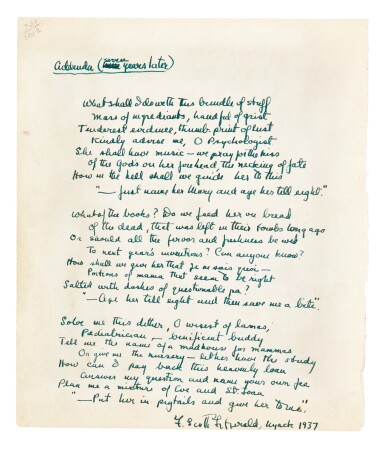 Addenda (seven years later)
What shall I do with this bundle of stuff
Mass of ingredients, handful of grist
Tenderest evidence, thumb print of lust
Kindly advise me, O Psychologist
She shall have music — we pray for the kiss
Of the Gods on her forehead, the necking of fate
How in the hell shall we guide her to this
"— Just name her Mary and age her till eight."
What of the books? Do we feed her our bread
of the dead, that was left in their tombs long ago
Or should all the fervor and freshness be wed
To next year's inventions? Can anyone know?
How shall we give her that je ne sais quoi —
Portions of mama that seem to be right
Salted with dashes of questionable pa?
"— Age her till eight and then save me a bite".
Solve me this dither, O wisest of lamas,
Pediatrician — beneficent buddy
Tell me the name of a madhouse for mammas
Or give me the nursery — let her have the study
How can I pay back this heavenly loan
Answer my question and name your own fee
Plan me a mixture of Eve and St. Joan
"— Put her in pigtails and give her to me."
F. Scott Fitzgerald, Nyack 1937